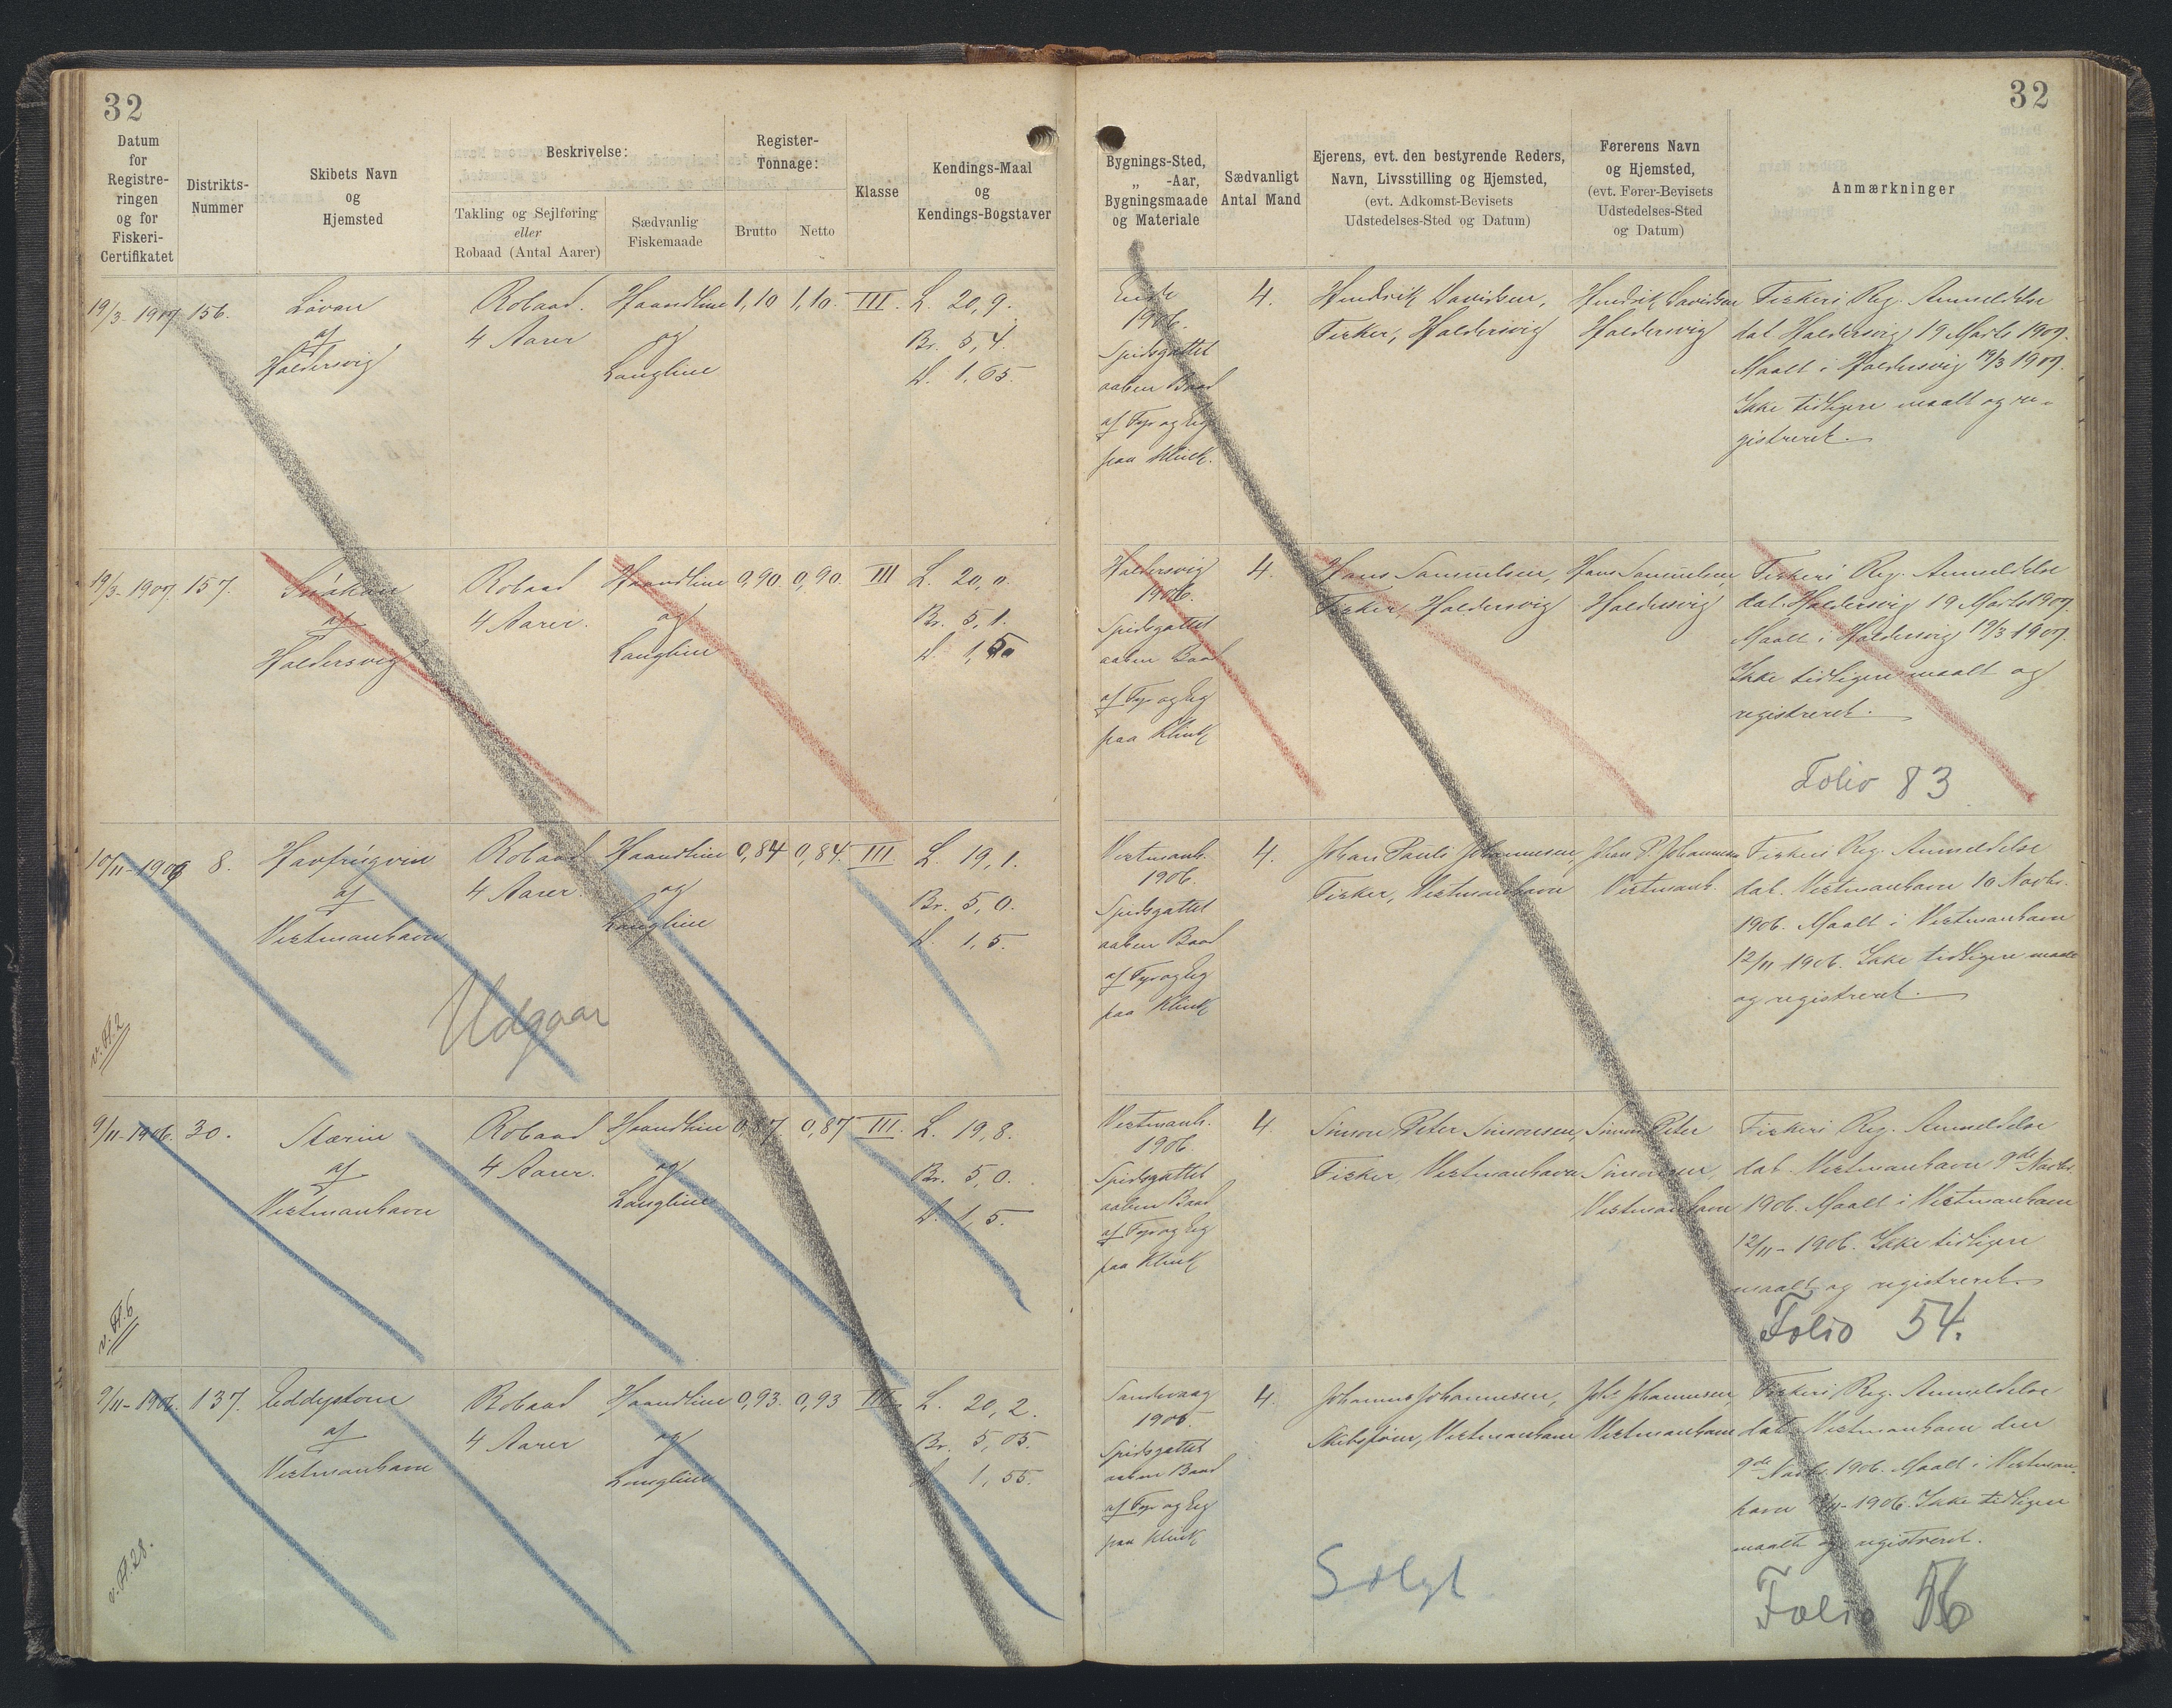 32
32
Datum
for
Registre-
ringen
og for
Fiskeri-
Certifikatet
Distrikts-
Nummer
Skibets Navn
og
Hjemsted
Beskrivelse:
Takling og Sejlføring
eller
Robaad (Antal Aarer)
Sædvanlig
Fiskemaade
Register-
Tonnage:
Brutto
Netto
Klasse
Kendings-Maal
og
Kendings-Bogstaver
Bygnings-Sted,
„ -Aar,
Bygningsmaade
og Materiale
Sædvanligt
Antal Mand
Ejerens, evt. den bestyrende Reders,
Navn, Livsstilling og Hjemsted,
(evt. Adkomst-Bevisets
Udstedelses-Sted og Datum)
Førerens Navn
og Hjemsted,
(evt. Fører-Bevisets
Udstedelses-Sted
og Datum)
Anmærkninger
19/3 1907
156.
Lovan
af
Haldersvig
Robaad.
4 Aarer
Haandline
og
Langline
1,10
1,10.
III.
L. 20,9.
Br. 5,4.
D. 1,65.
1906.
Spidsgattet
aaben Baad
af Fyr og Eg
paa Klink.
4.
Hendrik Davidsen,
Fisker, Haldersvig
Hendrik Davidsen
Haldersvig
Fiskeri Reg. Anmeldelse
dat. Haldersvig 19 Marts 1907.
Maalt i Haldersvig 19/3 1907.
Ikke tidligere maalt og re-
gistreret.
19/3 1907.
157.
af
Haldersvig
Robaad
4 Aarer.
Haandline
og
Langline
0,90.
0,90.
III
L. 20,0.
Br. 5,1.
D. 1,50
Haldersvig
1906.
Spidsgattet
aaben Baad
af Fyr og Eg
paa Klink
4.
Hans Samuelsen,
Fisker, Haldersvig
Hans Samuelsen,
Haldersvig
Fiskeri Reg. Anmeldelse
dat. Haldersvig 19 Marts 1907.
Maalt i Haldersvig 19/3 1907.
Ikke tidligere maalt og
registreret.
Folio 83
10/11-1906
8.
Havfrúgvin
af
Vestmanhavn
Robaad
4 Aarer.
Haandline
og
Langline
0,84
0,84.
III
L. 19,1.
Br. 5,0.
D. 1,5.
Udgaar
v. H. 2
Vestmanh.
1906.
Spidsgattet
aaben Baad
af Fyr og Eg
paa Klink
4.
Johan Pauli Johannesen,
Fisker, Vestmanhavn
Johan P. Johannesen
Vestmanh.
Fiskeri Reg. Anmeldelse
dat. Vestmanhavn 10 Novbr.
1906. Maalt i Vestmanhavn
12/11-1906. Ikke tidligere maalt
og registreret.
9/11-1906.
30.
Stærin
af
Vestmanhavn
Robaad
4 Aarer.
Haandline
og
Langline
0,87
0,87
III.
L. 19,8.
Br. 5,0.
D. 1,5.
v. H. 6
Vestmanh.
1906
Spidsgattet
aaben Baad
af Fyr og Eg
paa Klink
4.
Simon Peter Simonsen,
Fisker, Vestmanhavn
Simon Peter
Simonsen,
Vestmanhavn
Fiskeri Reg. Anmeldelse
dat. Vestmanhavn 9de Novbr.
1906. Maalt i Vestmanhavn
12/11-1906. Ikke tidligere
maalt og registreret.
Folio 54.
9/11-1906.
137.
Eddystone
af
Vestmanhavn
Robaad
4 Aarer
Haandline
og
Langline
0,93.
0,93
III.
L. 20,2.
Br. 5,05.
D. 1,55.
v. H. 28.
Sandevaag
1905.
Spidsgattet
aaben Baad
af Fyr og Eg
paa Klink
4.
Johannes Johannesen,
Skibsfører, Vestmanhavn
Johs Johannesen,
Vestmanhavn
Fiskeri Reg. Anmeldelse
dat. Vestmanhavn den
9de Novbr. 1906. Maalt i Vestman-
havn 12/11-1906. Ikke tidligere
maalt og registreret.
Solgt
Folio 56